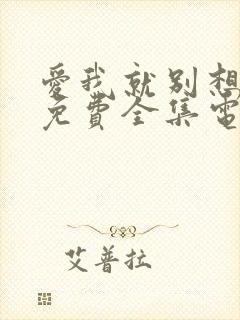 愛我就别想
免費全集電
艾普拉